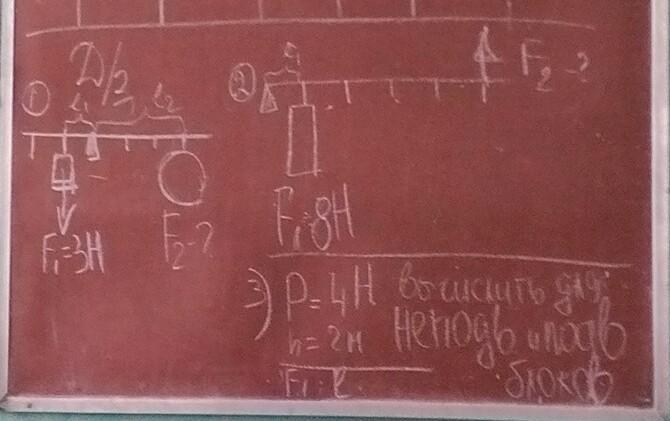 Д/з
① l₁ l₂
F₁=3Н F₂-?
② l₁ F₂-?
F₁=8Н
3) P=4Н вычислить для
h=2м неподв и подв
F₁ l блоков